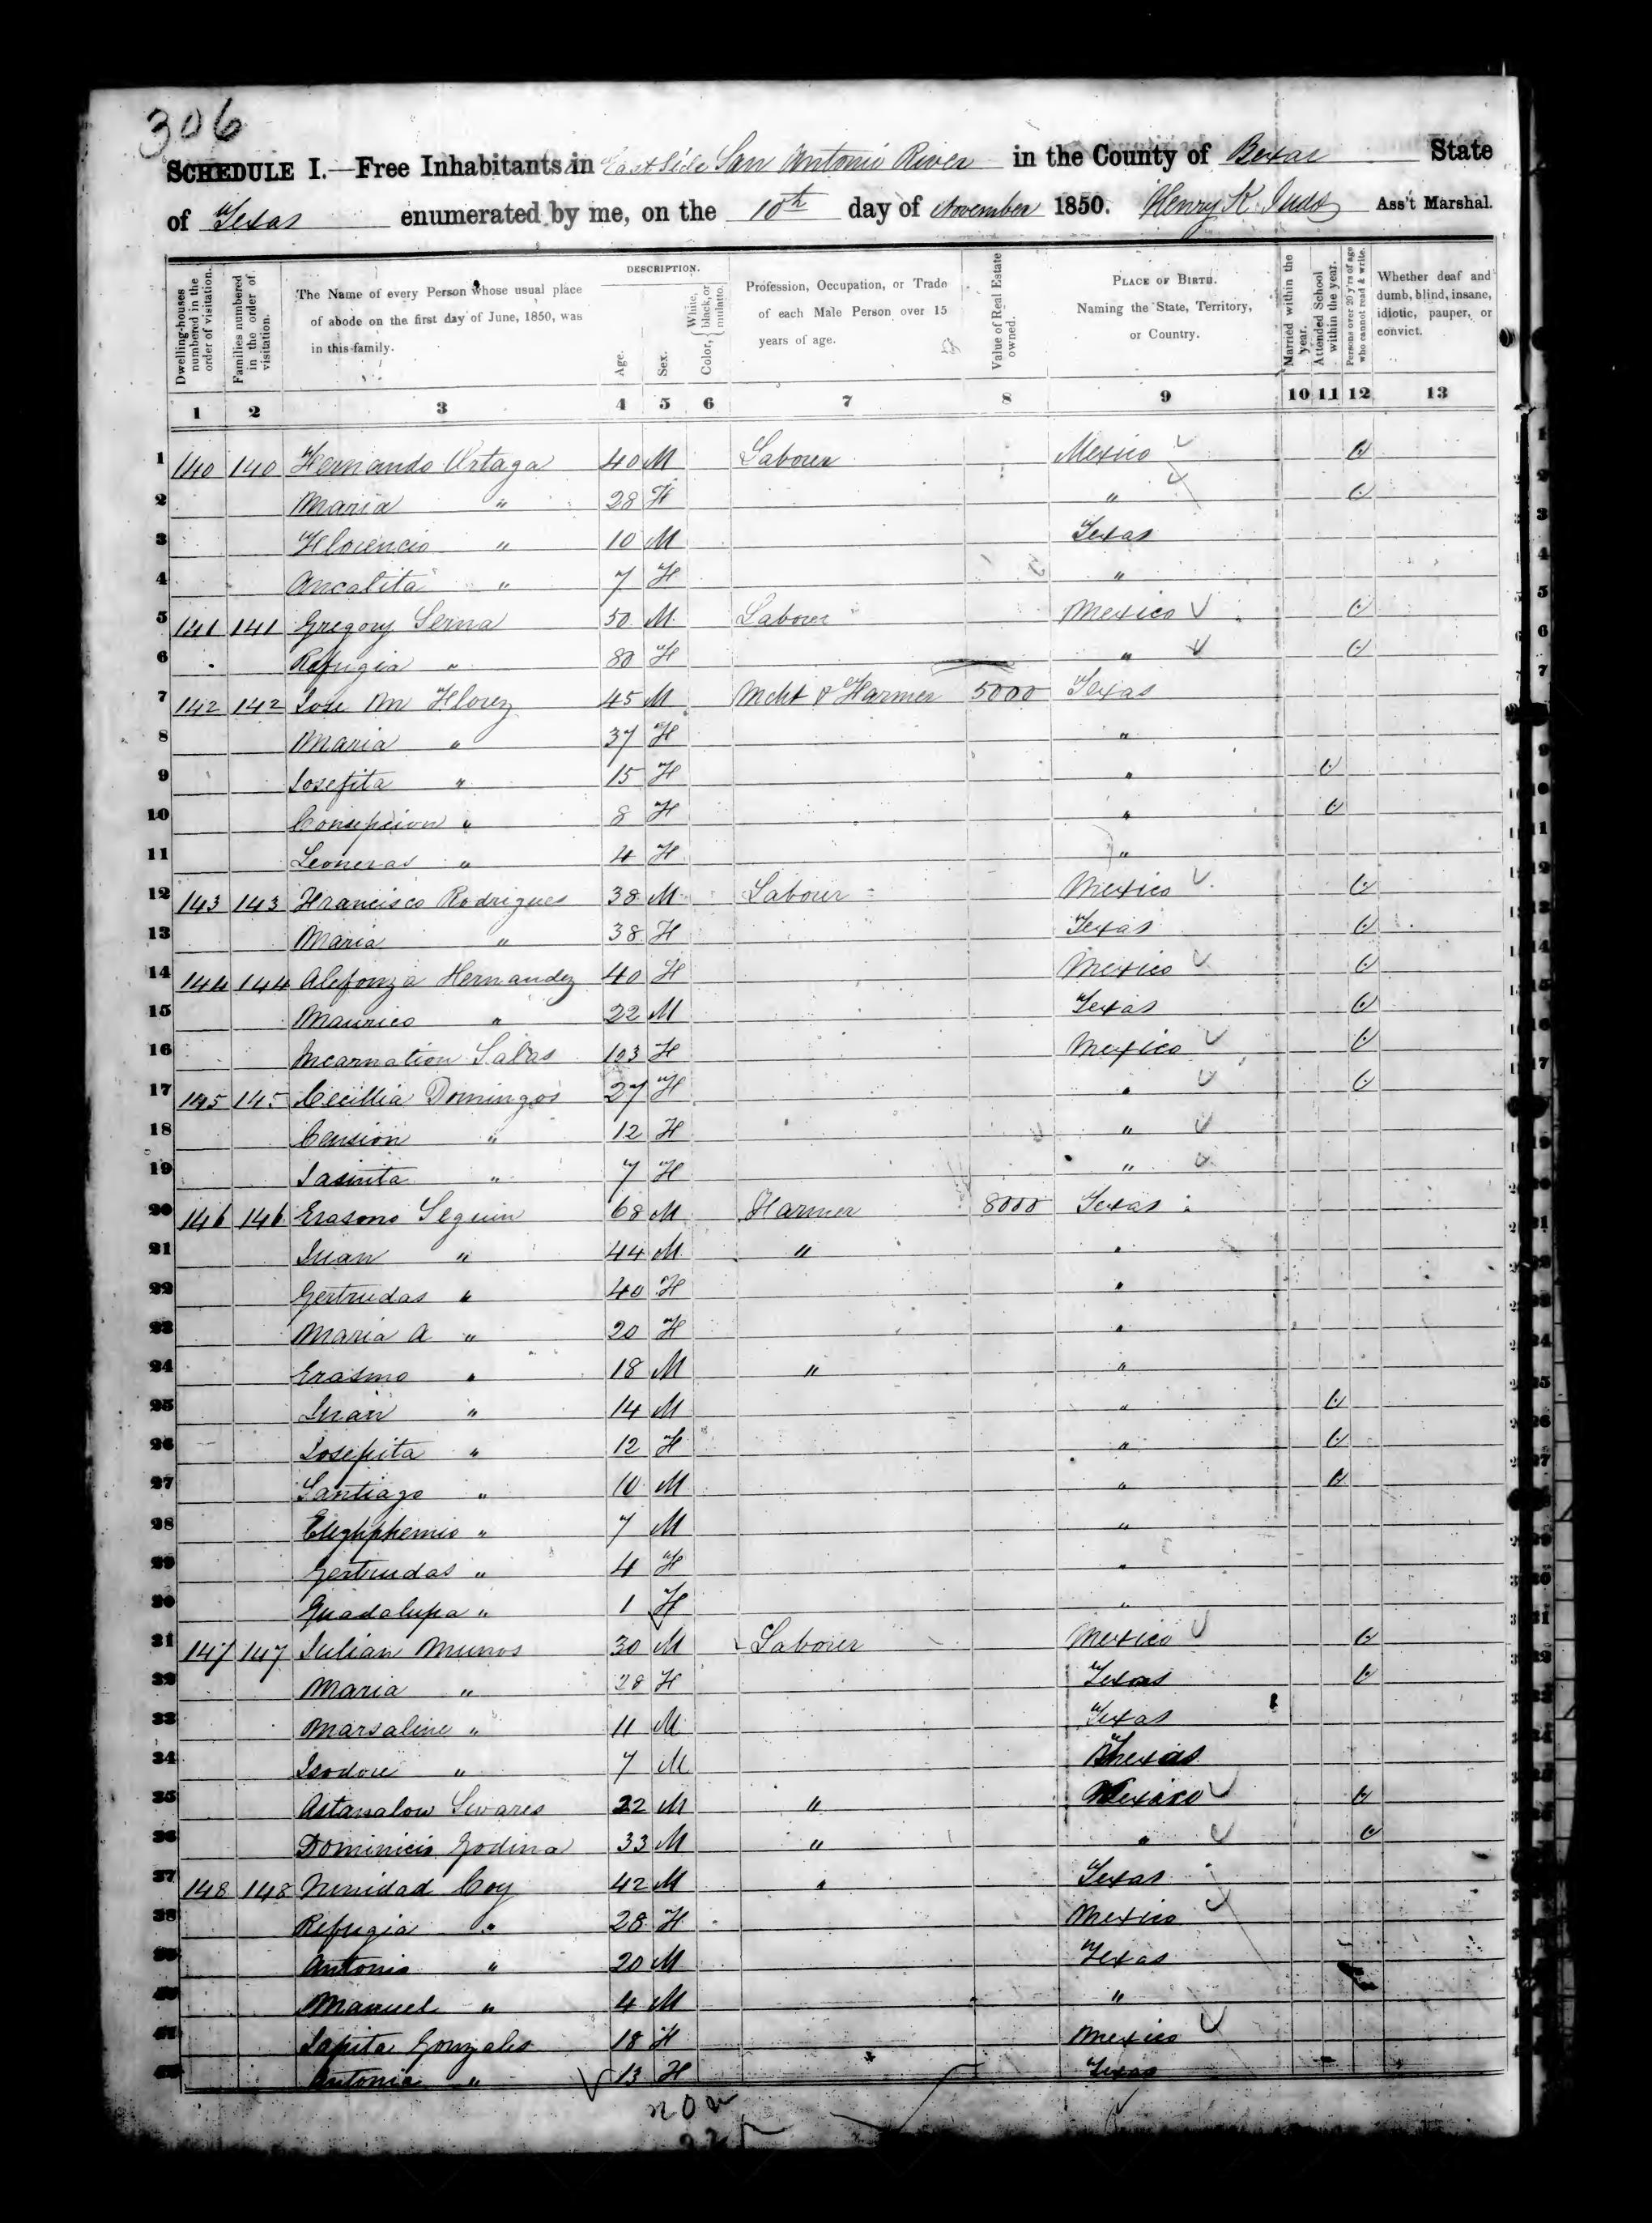 306
SCHEDULE I.—Free Inhabitants in East Side San Antonio River in the County of Bexar State
of Texas enumerated by me, on the 10th day of November 1850. Henry K Judd Ass't Marshal.
Dwelling-houses numbered in the order of visitation.
Families numbered in the order of visitation.
The Name of every Person whose usual place of abode on the first day of June, 1850, was in this family.
DESCRIPTION.
Age.
Sex.
Color, { White, black, or mulatto.
Profession, Occupation, or Trade of each Male Person over 15 years of age.
Value of Real Estate owned.
PLACE OF BIRTH. Naming the State, Territory, or Country.
Married within the year.
Attended School within the year.
Persons over 20 y'rs of age who cannot read & write.
Whether deaf and dumb, blind, insane, idiotic, pauper, or convict.
1 2 3 4 5 6 7 8 9 10 11 12 13
1 140 140 Fernando Ortaga 40 M Labourer Mexico
2 Maria " 28 F "
3 Florencio " 10 M Texas
4 Ancalita " 7 F "
5 141 141 Gregory Serna 50 M Labourer Mexico
6 Refugia " 80 F "
7 142 142 Jose Ma Florez 45 M Mcht & Farmer 5000 Texas
8 Maria " 37 F "
9 Josefita " 15 F "
10 Consepcion " 8 F "
11 Leoneras " 4 F "
12 143 143 Francisco Rodrigues 38 M Labourer Mexico
13 Maria " 38 F Texas
14 144 144 Alefonza Hernandez 40 F Mexico
15 Maurico " 22 M Texas
16 Incarnation Salas 103 F Mexico
17 145 145 Cecillia Domingos 27 F "
18 Cension " 12 F "
19 Jasinta " 7 F "
20 146 146 Erasmo Seguin 68 M Farmer 8000 Texas
21 Juan " 44 M " "
22 Gertrudas " 40 F "
23 Maria A " 20 F "
24 Erasmo " 18 M " "
25 Juan " 14 M "
26 Josepita " 12 F "
27 Santiago " 10 M "
28 " 7 M "
29 Gertrudas " 4 F "
30 Guadalupa " 1 F "
31 147 147 Julian Munos 30 M Labourer Mexico
32 Maria " 28 F Texas
33 Marsaline " 11 M Texas
34 Isodore " 7 M Texas
35 22 M " Mexico
36 Dominicio Godina 33 M " "
37 148 148 Trinidad Coy 42 M " Texas
38 Refugia " 28 F Mexico
39 Antonio " 20 M Texas
40 Manuel " 4 M "
41 Gonzales 18 F Mexico
42 Antonia " 13 F Texas